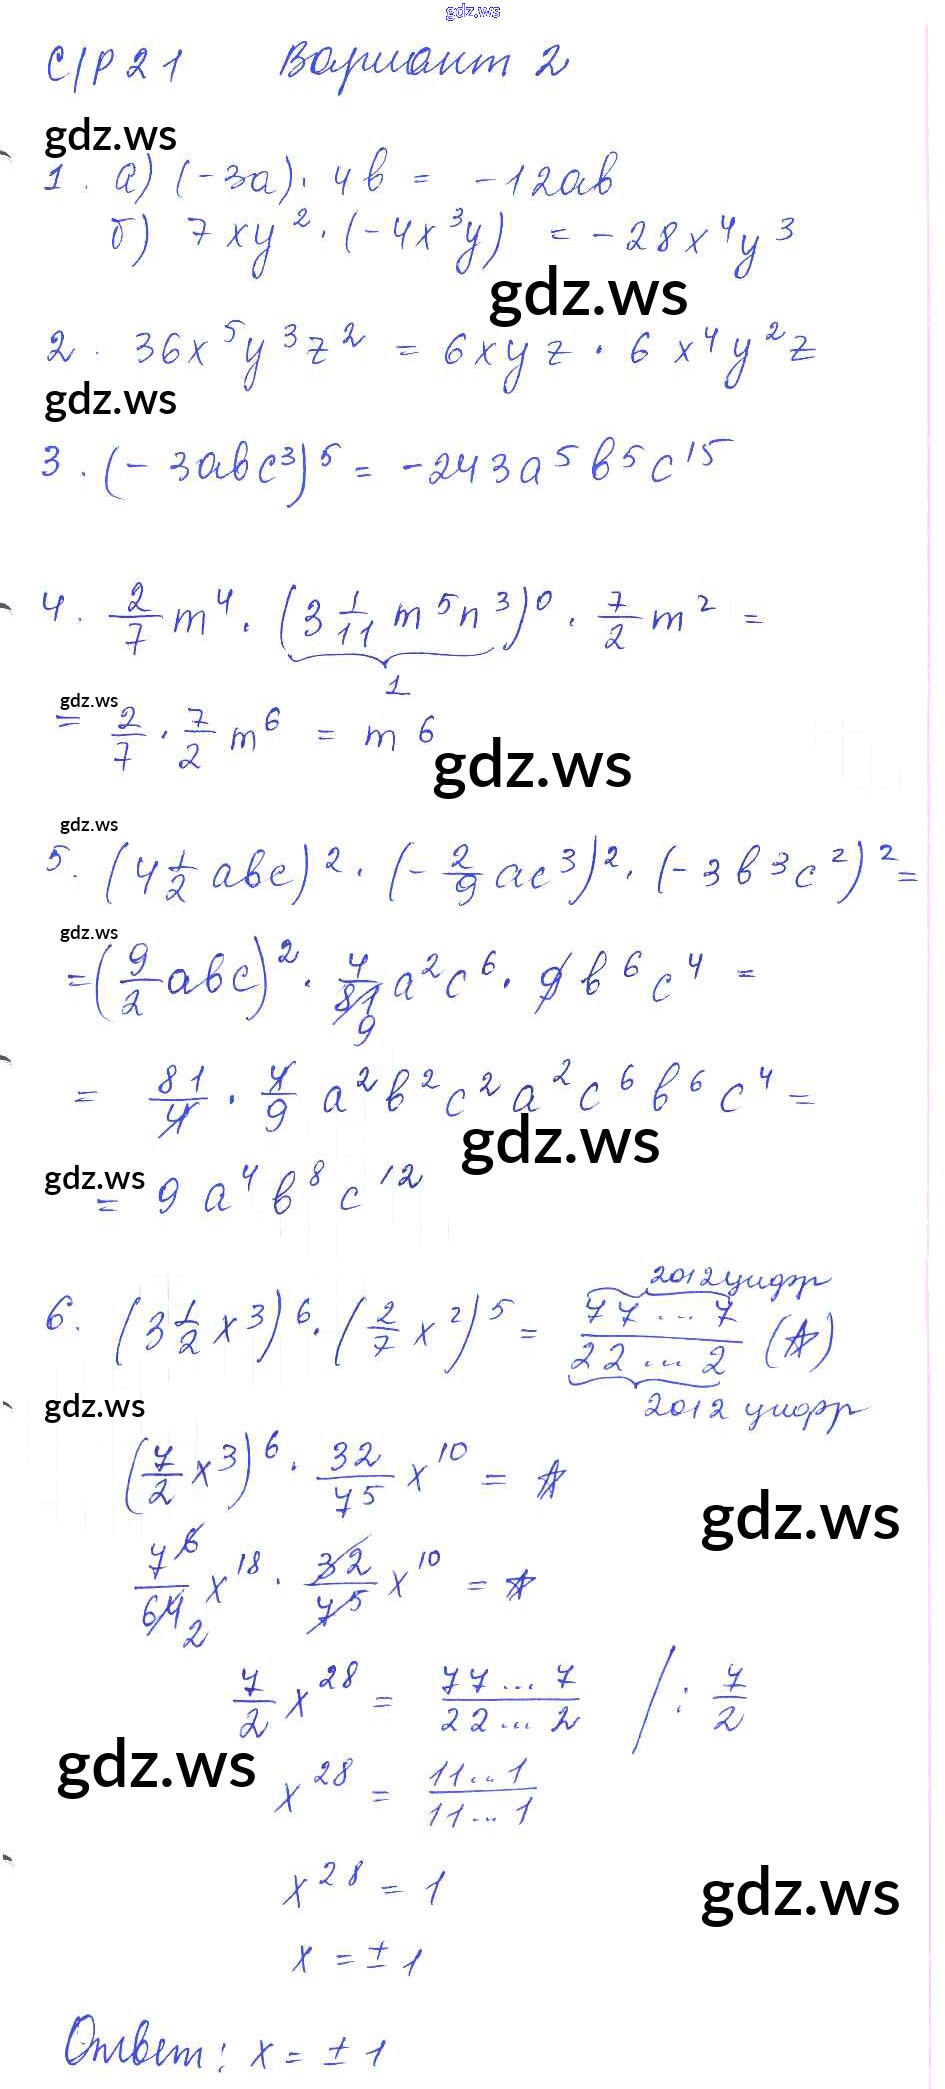 gdz.ws
С/Р 21 Вариант 2
gdz.ws
1. а) (-3a) · 4b = -12ab
б) 7xy² · (-4x³y) = -28x⁴y³
gdz.ws
2. 36x⁵y³z² = 6xyz · 6x⁴y²z
gdz.ws
3. (-3abc³)⁵ = -243a⁵b⁵c¹⁵
4. 2/7 m⁴ · (3 1/11 m⁵n³)⁰ · 7/2 m² =
1
gdz.ws
= 2/7 · 7/2 m⁶ = m⁶
gdz.ws
gdz.ws
5. (4 1/2 abc)² · (- 2/9 ac³)² · (-3b³c²)² =
gdz.ws
= (9/2 abc)² · 4/81 a²c⁶ · 9b⁶c⁴ =
9
= 81/4 · 4/9 a²b²c²a²c⁶b⁶c⁴ =
gdz.ws
gdz.ws
= 9a⁴b⁸c¹²
2012 цифр
6. (3 1/2 x³)⁶ · (2/7 x²)⁵ = 77...7/22...2 (А)
2012 цифр
gdz.ws
(7/2 x³)⁶ · 32/7⁵ x¹⁰ = А
gdz.ws
7⁶/64 x¹⁸ · 32/7⁵ x¹⁰ = А
2
7/2 x²⁸ = 77...7/22...2 / : 7/2
gdz.ws
x²⁸ = 11...1/11...1
x²⁸ = 1
gdz.ws
x = ± 1
Ответ: x = ± 1